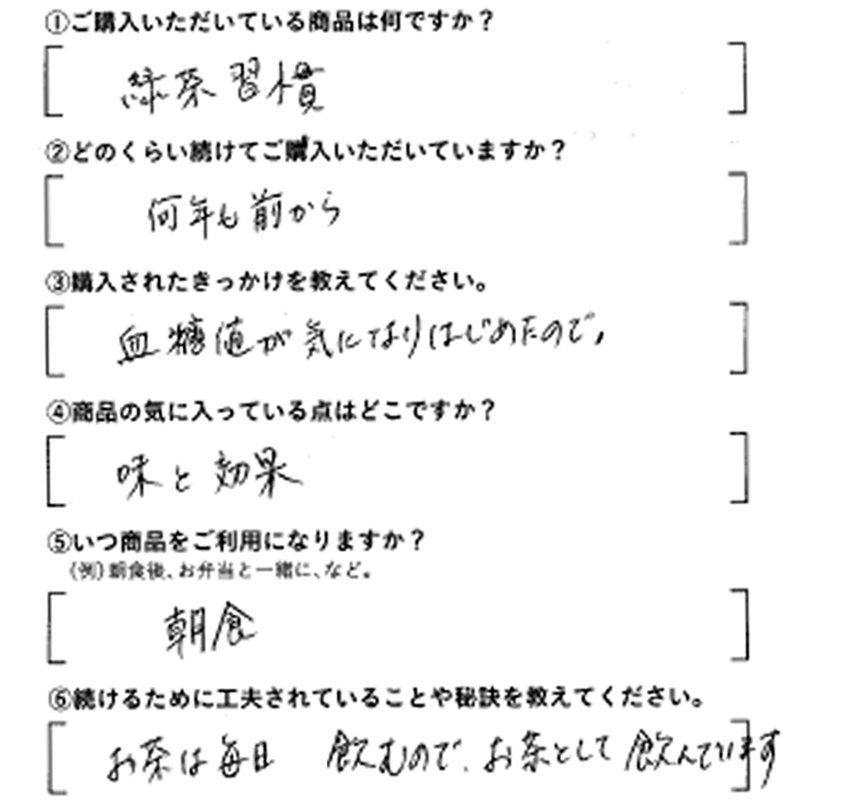 ①ご購入いただいている商品は何ですか？
緑茶習慣
②どのくらい続けてご購入いただいていますか？
何年も前から
③購入されたきっかけを教えてください。
血糖値が気になりはじめたので，
④商品の気に入っている点はどこですか？
味と効果
⑤いつ商品をご利用になりますか？
（例）朝食後、お弁当と一緒に、など。
朝食
⑥続けるために工夫されていることや秘訣を教えてください。
お茶は毎日 飲むので、お茶として飲んでいます